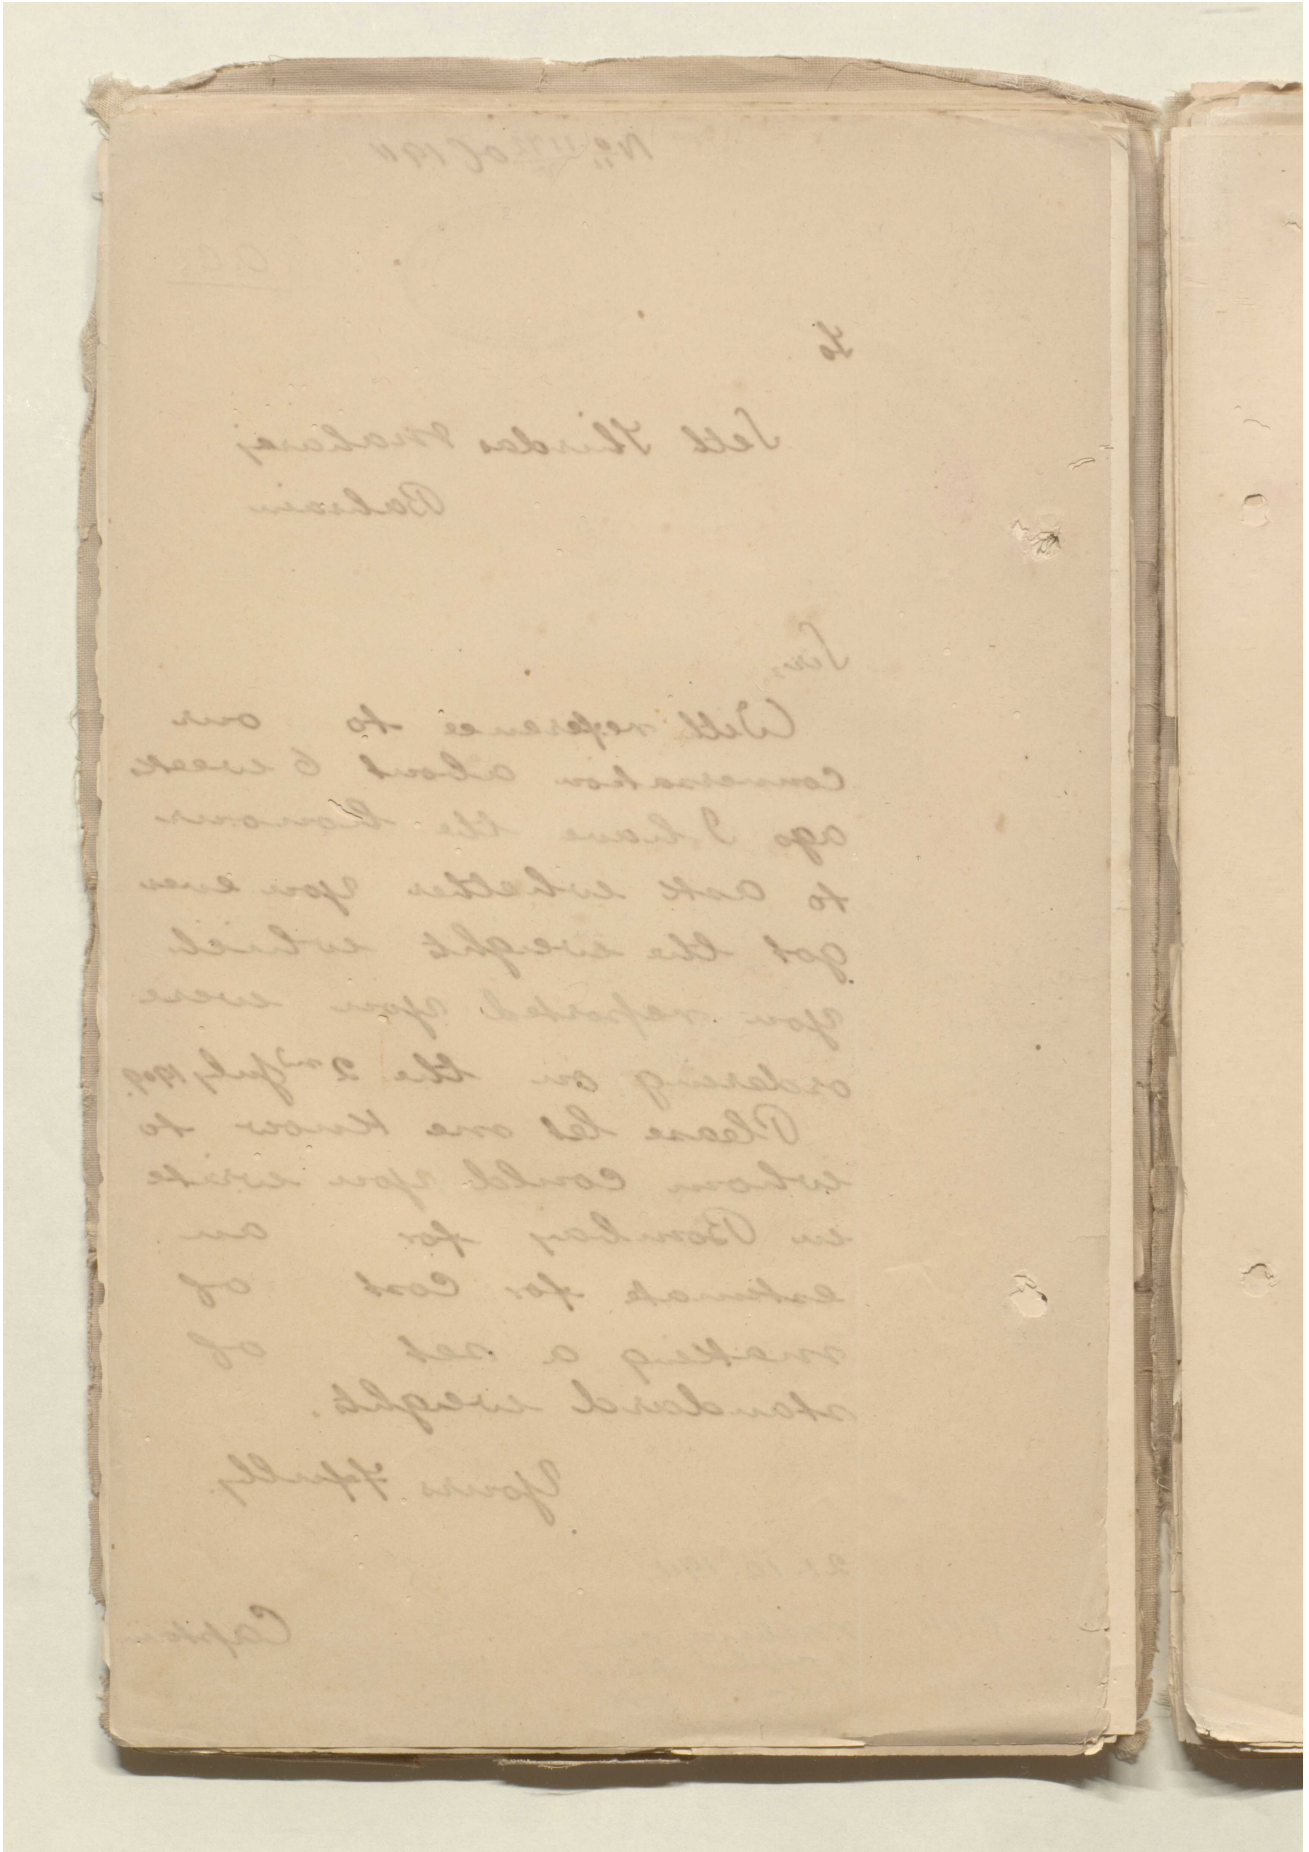 of 1911
To
Seth Thirdas Maharaj
Bahrein
Sir,
With reference to our
conversation about 6 weeks
ago, I have the honour
to ask whether you ever
got the weights which
you reported you were
ordering on the 2nd July 1909.
Please let me know to
whom could you write
in Bombay for an
estimate for cost of
making a set of
standard weights.
Yours ffully.
Captain